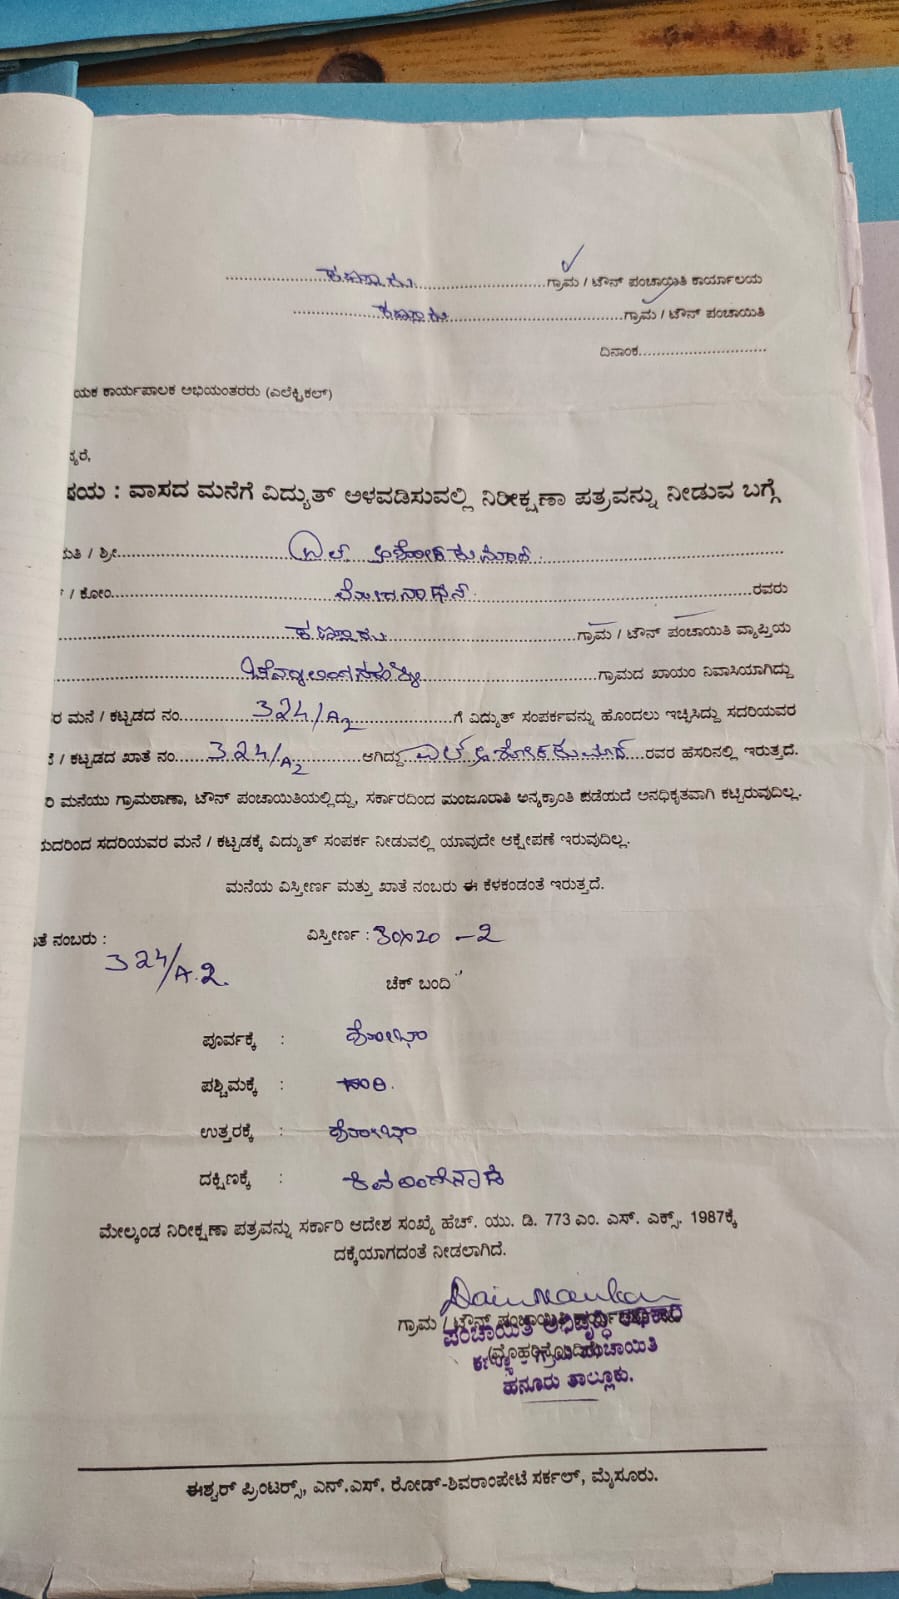 ಗ್ರಾಮ / ಟೌನ್ ಪಂಚಾಯಿತಿ ಕಾರ್ಯಾಲಯ
ಗ್ರಾಮ / ಟೌನ್ ಪಂಚಾಯಿತಿ
ದಿನಾಂಕ
ಯಕ ಕಾರ್ಯಪಾಲಕ ಅಭಿಯಂತರರು (ಎಲೆಕ್ಟ್ರಿಕಲ್)
ರೆ,
ಷಯ : ವಾಸದ ಮನೆಗೆ ವಿದ್ಯುತ್ ಅಳವಡಿಸುವಲ್ಲಿ ನಿರೀಕ್ಷಣಾ ಪತ್ರವನ್ನು ನೀಡುವ ಬಗ್ಗೆ
ಮತಿ / ಶ್ರೀ ಎಲ್ ಅಶೋಕಕುಮಾರ್
/ ಕೋಂ ರವರು
ಗ್ರಾಮ / ಟೌನ್ ಪಂಚಾಯಿತಿ ವ್ಯಾಪ್ತಿಯ
ಗ್ರಾಮದ ಖಾಯಂ ನಿವಾಸಿಯಾಗಿದ್ದು
ರ ಮನೆ / ಕಟ್ಟಡದ ನಂ. 324/A2 ಗೆ ವಿದ್ಯುತ್ ಸಂಪರ್ಕವನ್ನು ಹೊಂದಲು ಇಚ್ಛಿಸಿದ್ದು ಸದರಿಯವರ
/ ಕಟ್ಟಡದ ಖಾತೆ ನಂ. 324/A2 ಆಗಿದ್ದು ಎಲ್ ಅಶೋಕಕುಮಾರ್ ರವರ ಹೆಸರಿನಲ್ಲಿ ಇರುತ್ತದೆ.
ರಿ ಮನೆಯು ಗ್ರಾಮಠಾಣಾ, ಟೌನ್ ಪಂಚಾಯಿತಿಯಲ್ಲಿದ್ದು, ಸರ್ಕಾರದಿಂದ ಮಂಜೂರಾತಿ ಅನ್ಯಕ್ರಾಂತಿ ಪಡೆಯದೆ ಅನಧಿಕೃತವಾಗಿ ಕಟ್ಟಿರುವುದಿಲ್ಲ.
ುದರಿಂದ ಸದರಿಯವರ ಮನೆ / ಕಟ್ಟಡಕ್ಕೆ ವಿದ್ಯುತ್ ಸಂಪರ್ಕ ನೀಡುವಲ್ಲಿ ಯಾವುದೇ ಆಕ್ಷೇಪಣೆ ಇರುವುದಿಲ್ಲ.
ಮನೆಯ ವಿಸ್ತೀರ್ಣ ಮತ್ತು ಖಾತೆ ನಂಬರು ಈ ಕೆಳಕಂಡಂತೆ ಇರುತ್ತದೆ.
ತೆ ನಂಬರು : ವಿಸ್ತೀರ್ಣ : 30X20 -2
324/A.2.
ಚೆಕ್ ಬಂದಿ
ಪೂರ್ವಕ್ಕೆ :
ಪಶ್ಚಿಮಕ್ಕೆ :
ಉತ್ತರಕ್ಕೆ :
ದಕ್ಷಿಣಕ್ಕೆ :
ಮೇಲ್ಕಂಡ ನಿರೀಕ್ಷಣಾ ಪತ್ರವನ್ನು ಸರ್ಕಾರಿ ಆದೇಶ ಸಂಖ್ಯೆ ಹೆಚ್. ಯು. ಡಿ. 773 ಎಂ. ಎಸ್. ಎಕ್ಸ್. 1987ಕ್ಕೆ
ದಕ್ಕೆಯಾಗದಂತೆ ನೀಡಲಾಗಿದೆ.
ಗ್ರಾಮ / ಟೌನ್ ಪಂಚಾಯಿತಿ
ಪಂಚಾಯಿತಿ ಅಭಿವೃದ್ಧಿ ಅಧಿಕಾರಿ
ಗ್ರಾಮ ಪಂಚಾಯಿತಿ
ಹನೂರು ತಾಲ್ಲೂಕು.
ಈಶ್ವರ್ ಪ್ರಿಂಟರ್ಸ್, ಎನ್.ಎಸ್. ರೋಡ್-ಶಿವರಾಂಪೇಟೆ ಸರ್ಕಲ್, ಮೈಸೂರು.